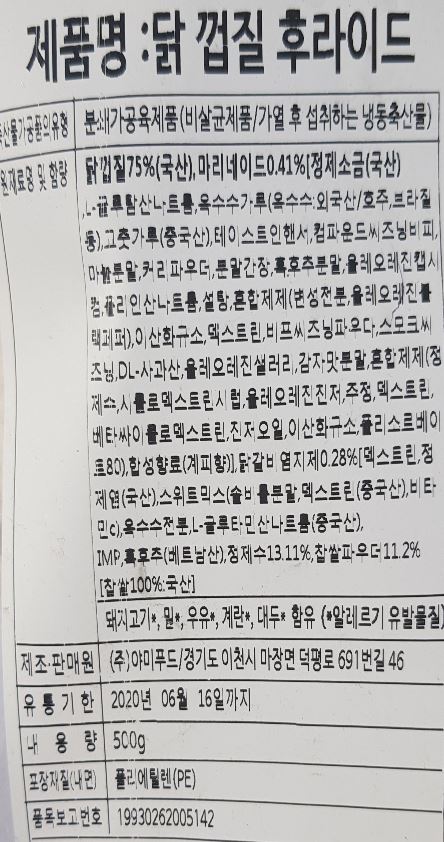 제품명 :닭 껍질 후라이드
축산물가공품의유형 분쇄가공육제품(비살균제품/가열 후 섭취하는 냉동축산물)
원재료명 및 함량 닭껍질75%(국산),마리네이드0.41%[정제소금(국산)
,L-글루탐산나트륨,옥수수가루(옥수수:외국산/호주,브라질
등),고춧가루(중국산),테이스트인핸서,컴파운드씨즈닝비피,
마늘분말,커리파우더,분말간장,흑후추분말,올레오레진캡시
컴,폴리인산나트륨,설탕,혼합제제(변성전분,올레오레진블
랙페퍼),이산화규소,덱스트린,비프씨즈닝파우다,스모크씨
즈닝,DL-사과산,올레오레진샐러리,감자맛분말,혼합제제(정
제수,시클로덱스트린시럽,올레오레진진저,주정,덱스트린,
베타싸이클로덱스트린,진저오일,이산화규소,폴리소르베이
트80),합성향료(계피향)],닭갈비 염지제0.28%[덱스트린,정
제염(국산),스위트믹스(솔비톨분말,덱스트린(중국산),비타
민c),옥수수전분,L-글루타민산나트륨(중국산),
IMP,흑후추(베트남산),정제수13.11%,찹쌀파우더11.2%
[찹쌀100%:국산]
돼지고기*, 밀*, 우유*, 계란*, 대두* 함유 (*알레르기 유발물질)
제조·판매원 (주)야미푸드/경기도 이천시 마장면 덕평로 691번길 46
유 통 기 한 2020년 06월 16일까지
내 용 량 500g
포장재질(내면) 폴리에틸렌(PE)
품목보고번호 19930262005142